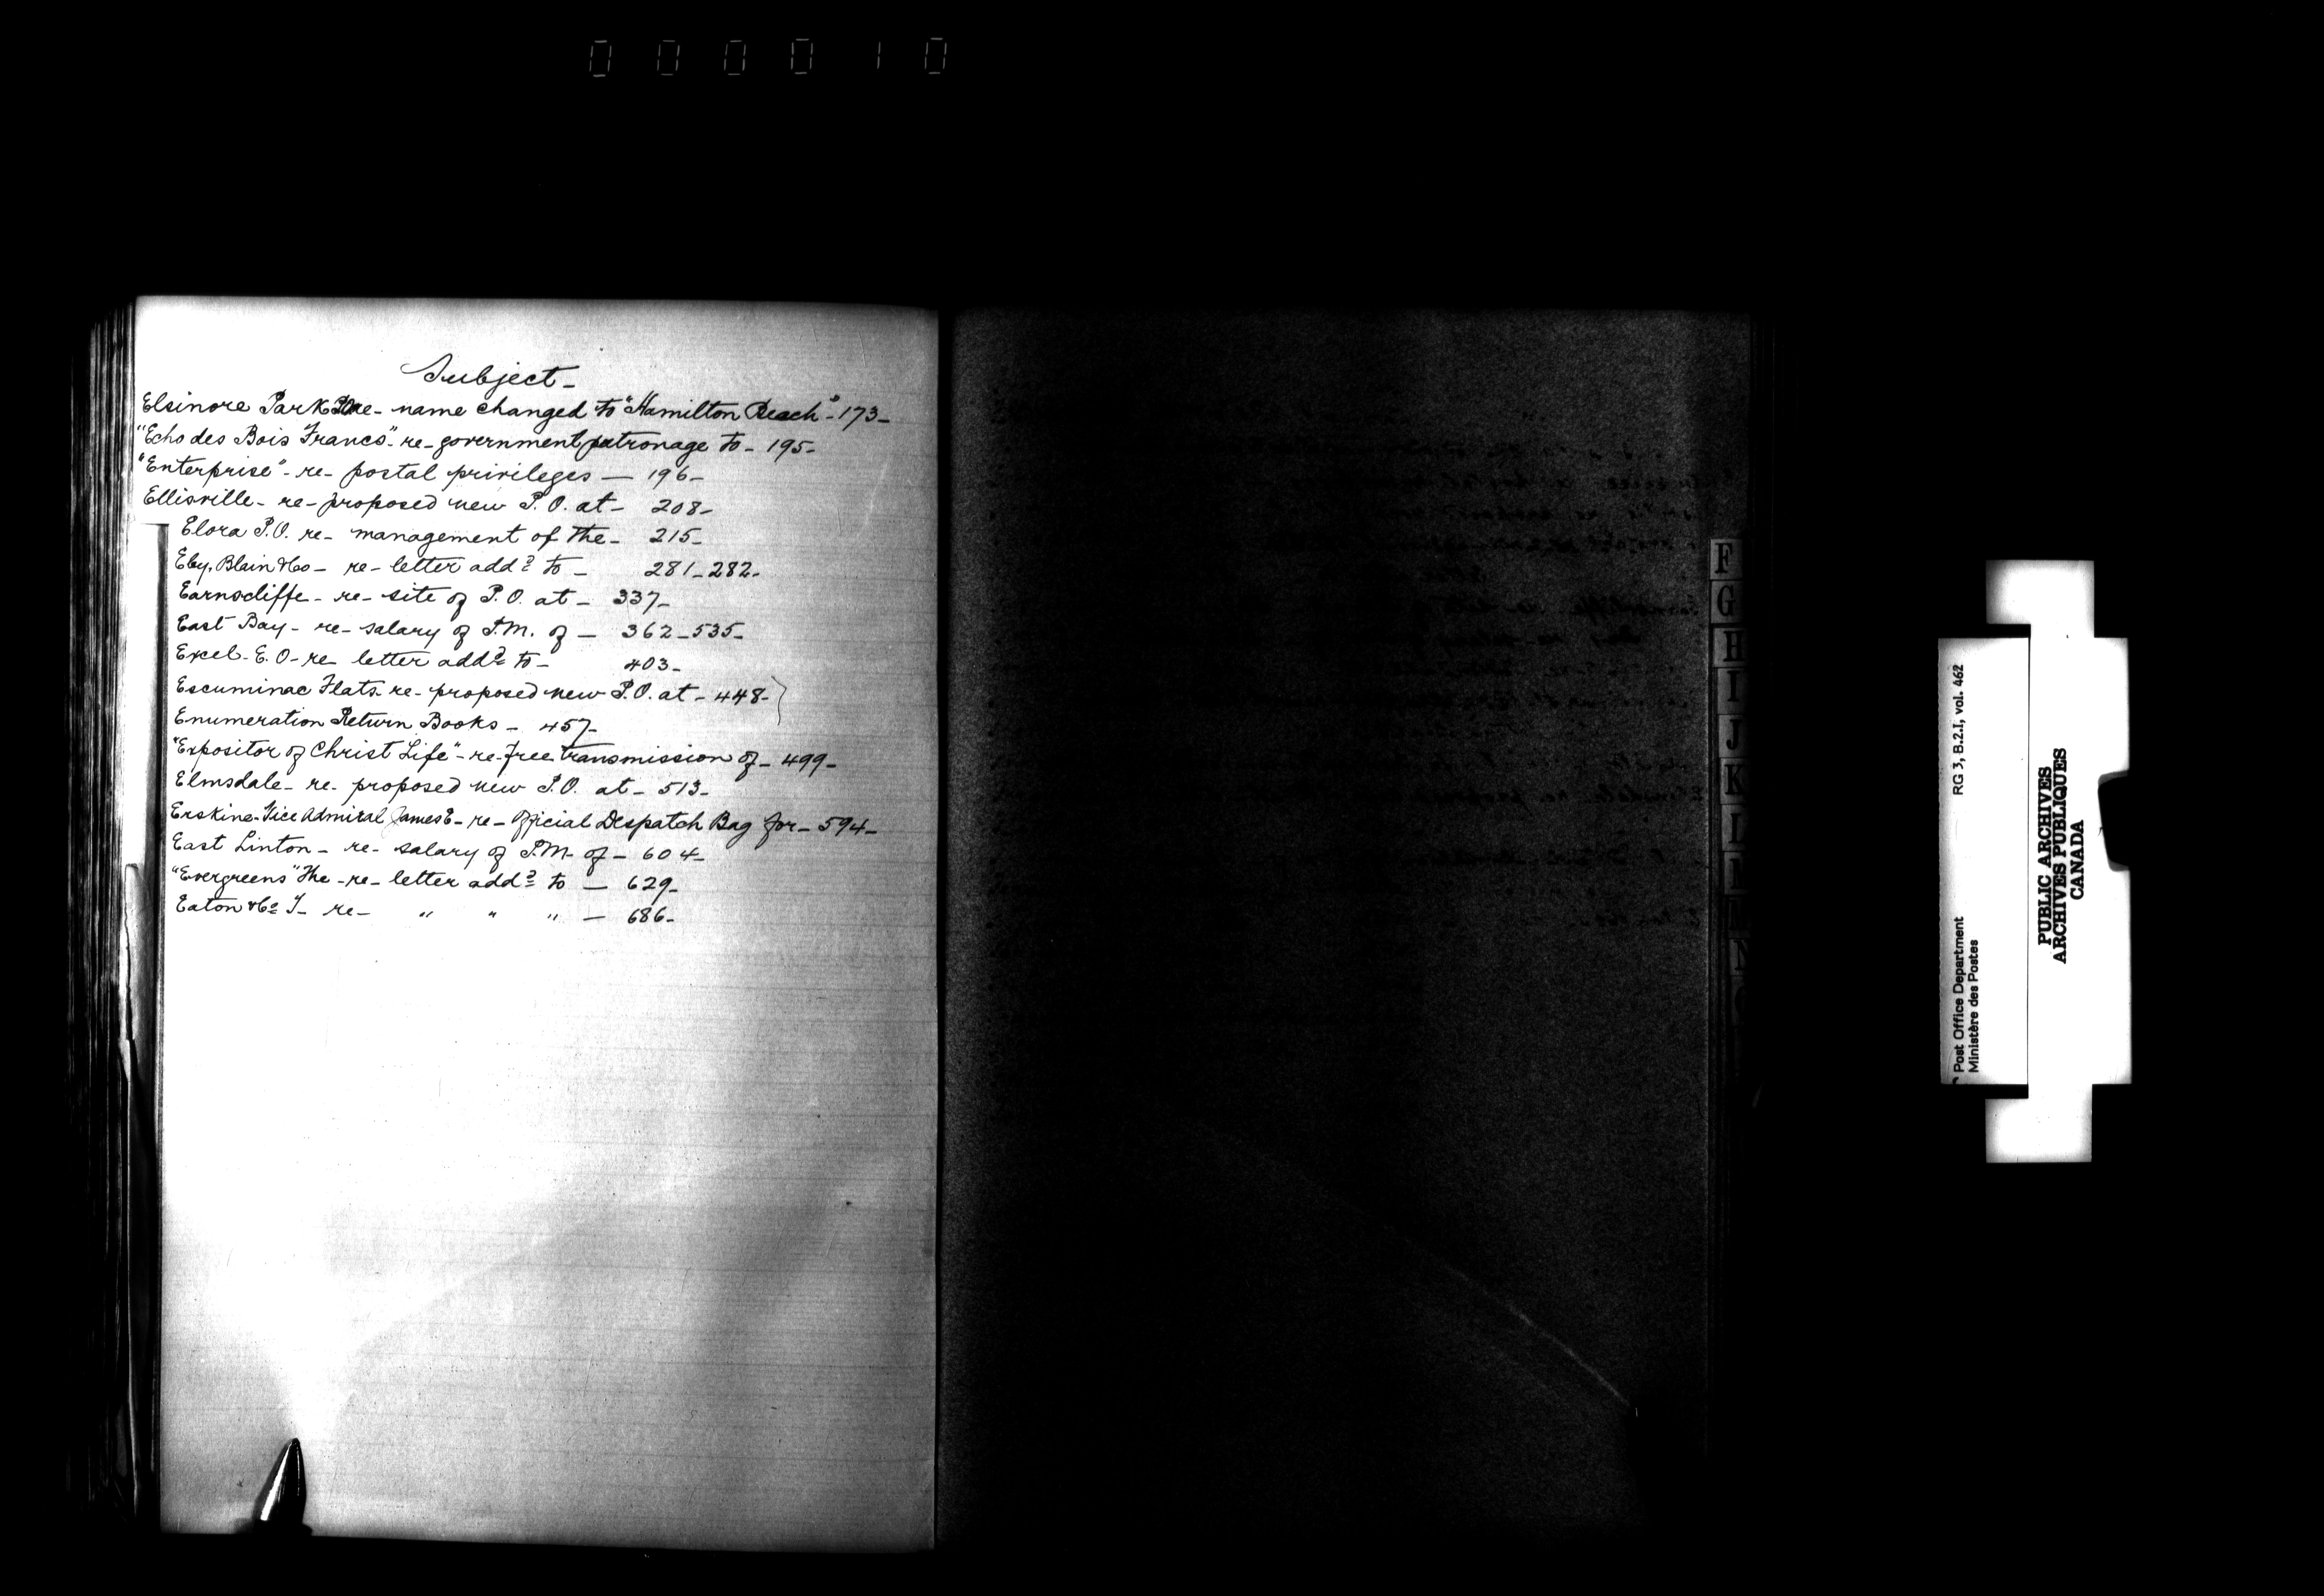 000010
Subject-
Elsinore Park re- name changed to "Hamilton Beach"- 173-
"Echo des Bois Francs"- re- government patronage to- 195-
"Enterprise"- re- postal privileges — 196-
Ellisville- re- proposed new P.O. at- 208-
Elora P.O. re- management of the- 215-
Eby, Blain & Co- re- letter addd to- 281-282-
Earnscliffe- re- site of P.O. at- 337-
East Bay- re- salary of P.M. of- 362-535-
Excel- E. O- re- letter addd to- 403-
Escuminac Flats- re- proposed new P.O. at- 448-
Enumeration Return Books- 457-
"Expositor of Christ Life"- re- free transmission of- 499-
Elmsdale- re- proposed new P.O. at- 513-
Erskine- Vice Admiral James E- re- Official Despatch Bag for- 594-
East Linton- re- salary of P.M. of- 604-
"Evergreens" The- re- letter addd to — 629-
Eaton & Co T- re- " " " — 686-
F
G
H
I
J
K
L
N
Post Office Department
Ministère des Postes
RG 3, B.2.I, vol. 462
PUBLIC ARCHIVES
ARCHIVES PUBLIQUES
CANADA